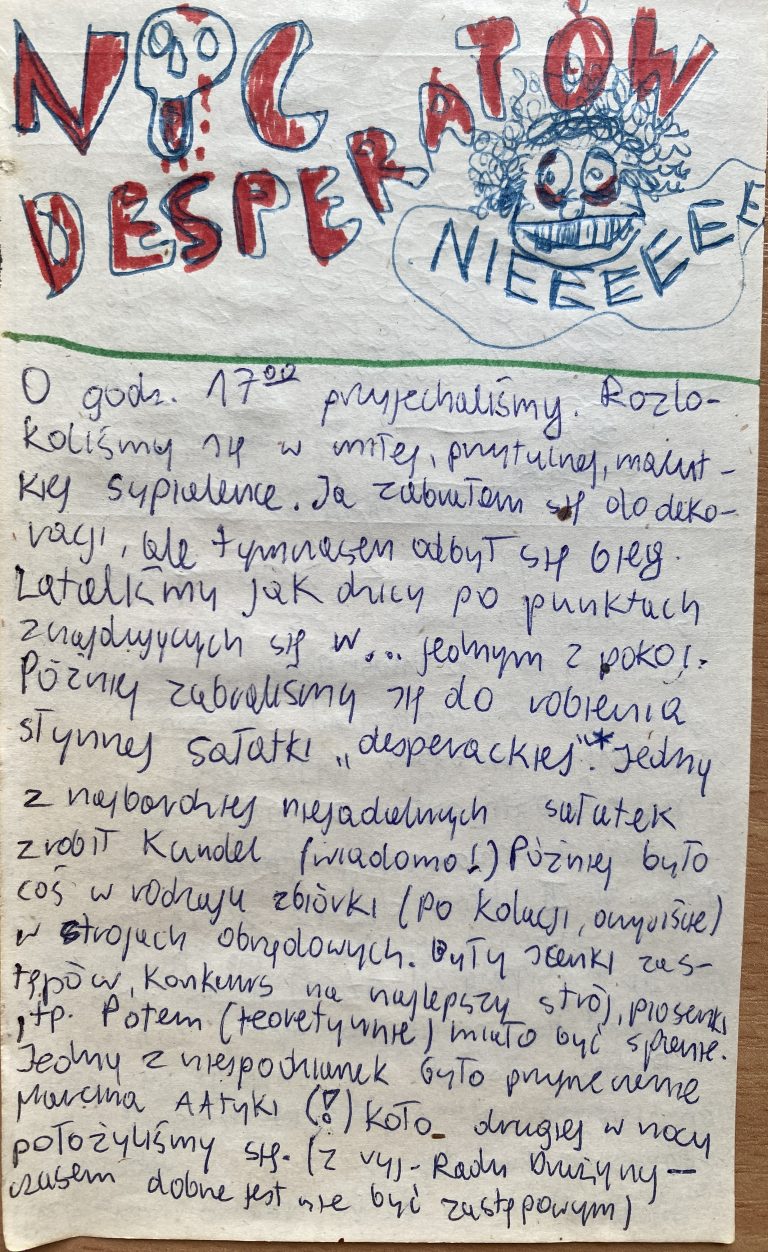 NOC
DESPERATÓW
NIEEEEEEE
O godz. 17⁰⁰ przyjechaliśmy. Rozlo-
koliśmy się w miłej, przytulnej, malut-
kiej sypialence. Ja zabrałem się do deko-
racji, ale tymczasem odbył się bieg.
Lataliśmy jak dzicy po punktach
znajdujących się w... jednym z pokoi.
Później zabraliśmy się do robienia
słynnej sałatki „desperackiej".* Jedną
z najbardziej niejadalnych sałatek
zrobił Kundel (wiadomo!) Później było
coś w rodzaju zbiórki (po kolacji, oczywiście)
w strojach obrzędowych. Były scenki zas-
tępów, konkurs na najlepszy strój, piosenki
itp. Potem (teoretycznie) miało być spanie.
Jedną z niespodzianek było
Marcina (!) Koło drugiej w nocy
położyliśmy się. (z wyj. Rady Drużyny —
czasem dobrze jest nie być zastępowym)